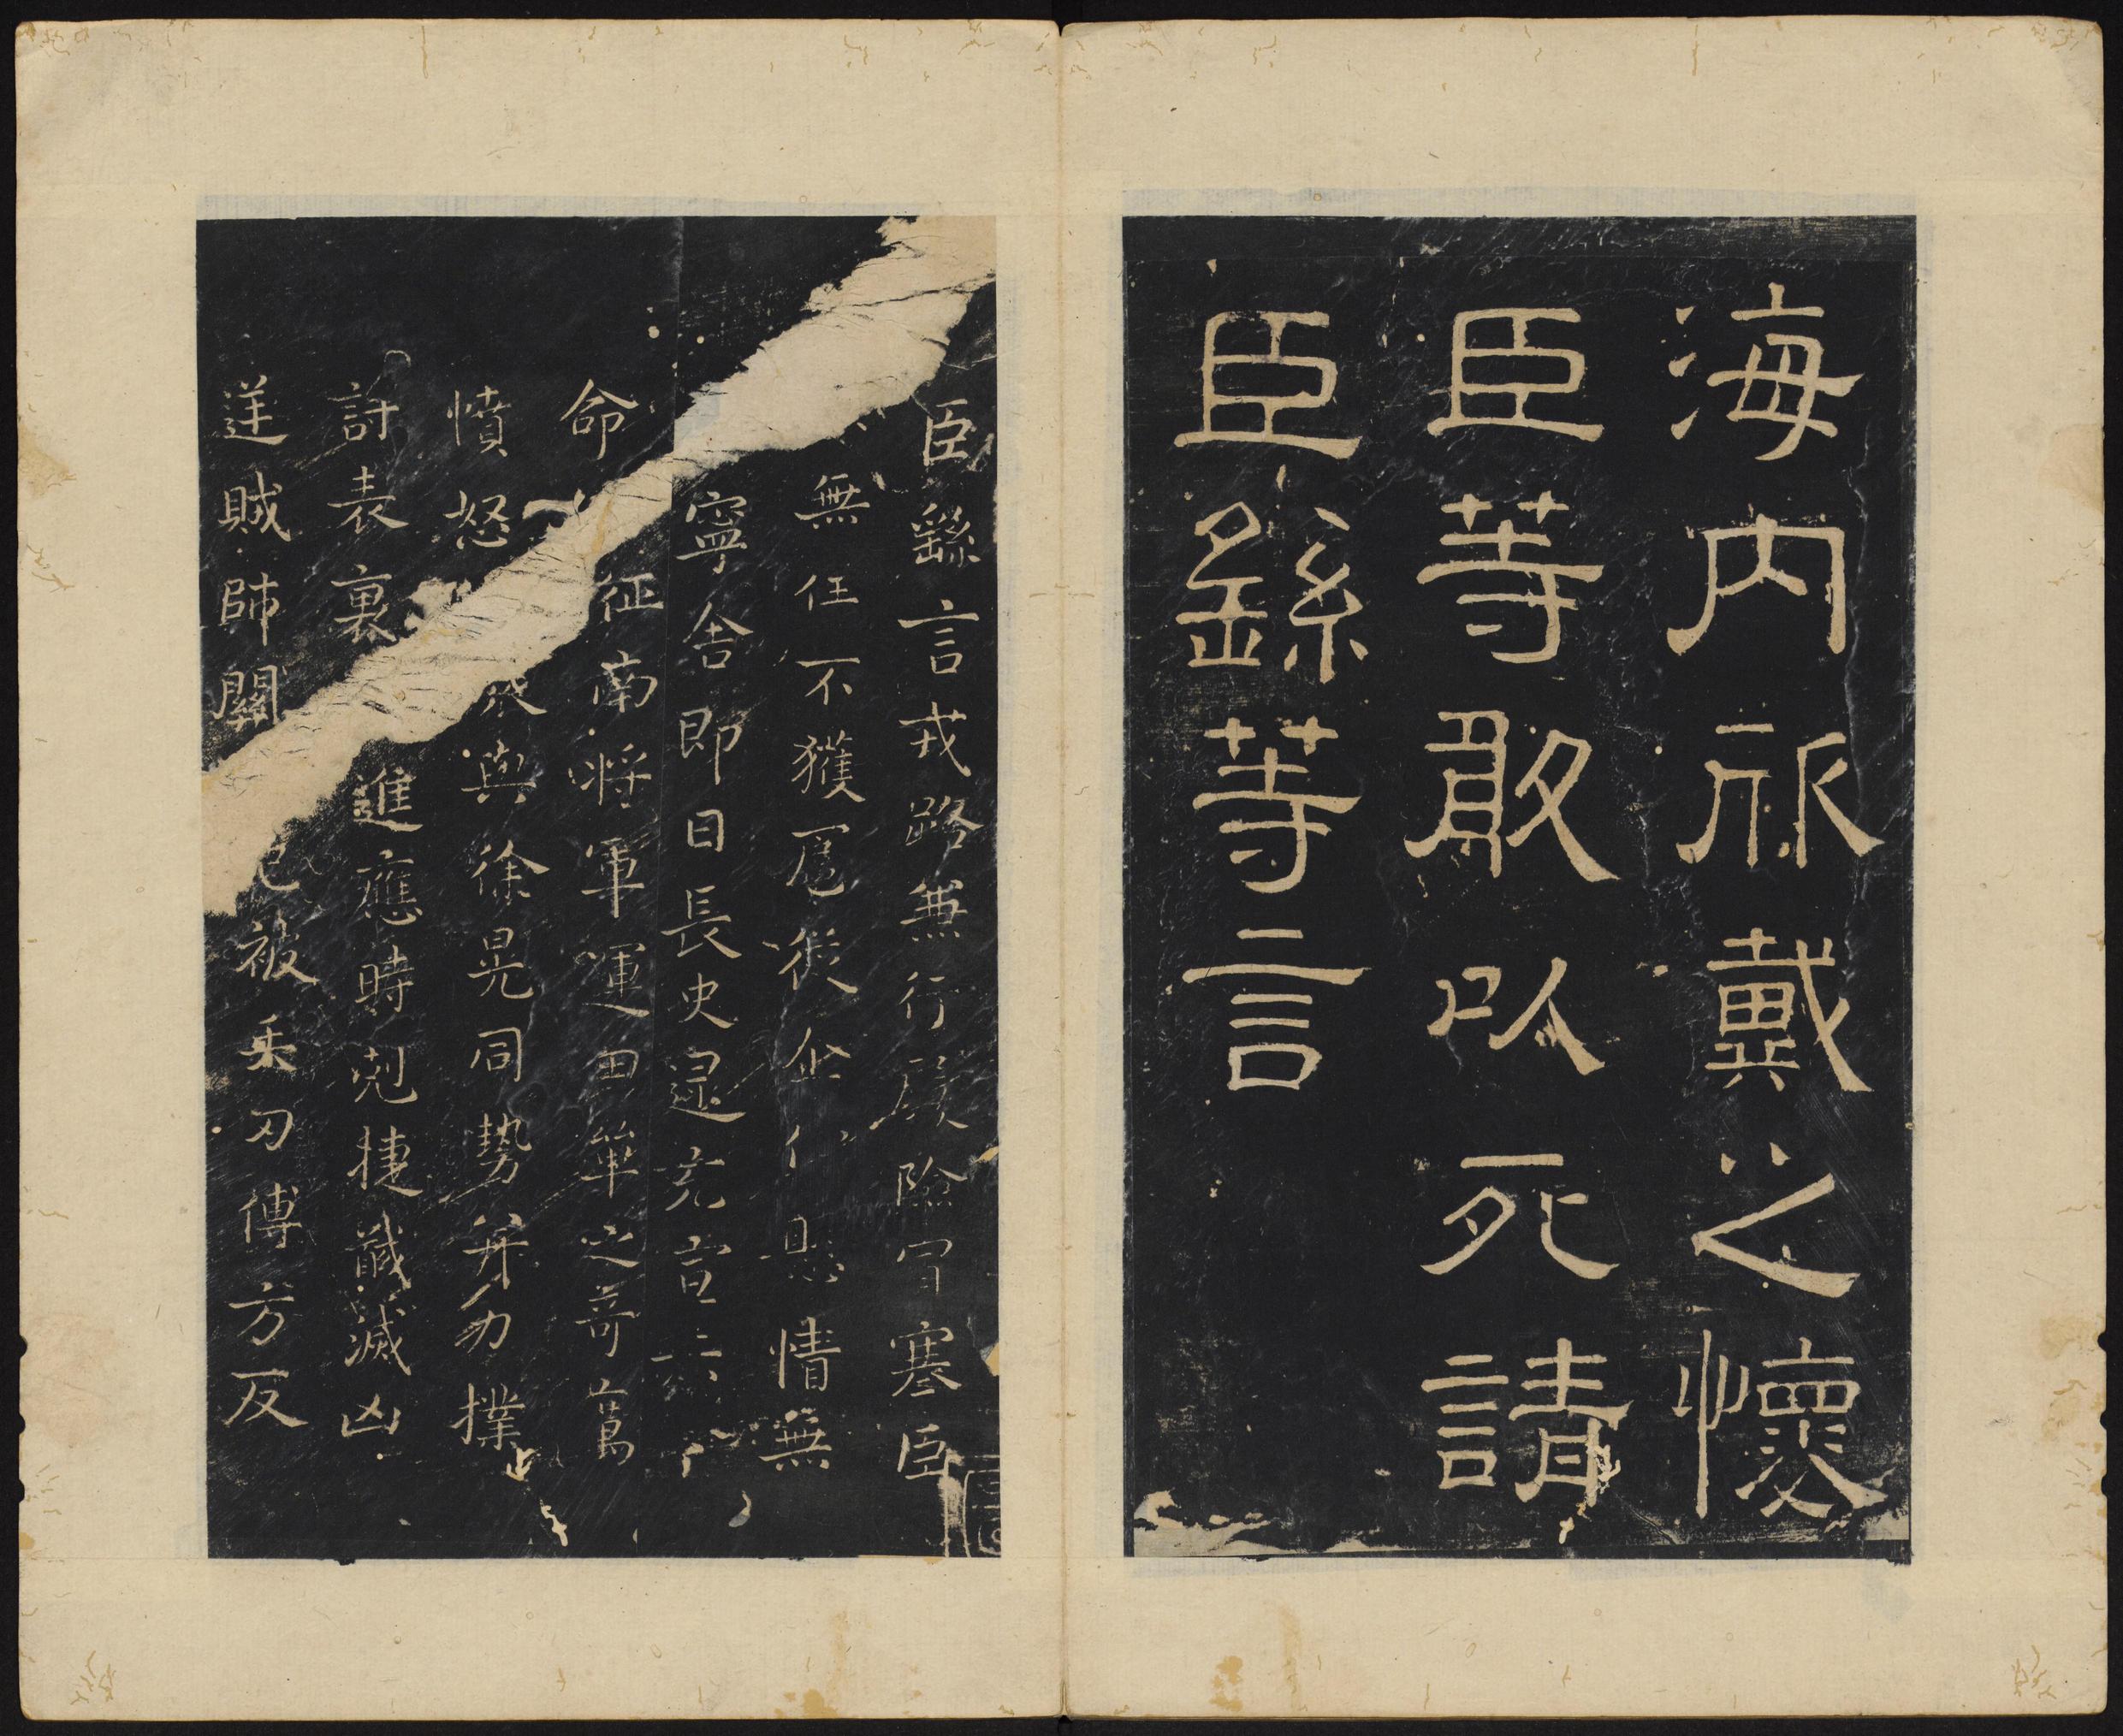 海内欣戴之懷
臣等敢以死請
臣繇等言
臣繇言戎路兼行履險冒寒臣
無任不獲扈從企仁懸情無
寧舍即日長史逯充宣
命征南將軍運田單之奇萬
憤怒與徐晃同勢并力撲
討表裏進應時剋捷馘滅凶
逆賊帥關已被矢刃傅方反